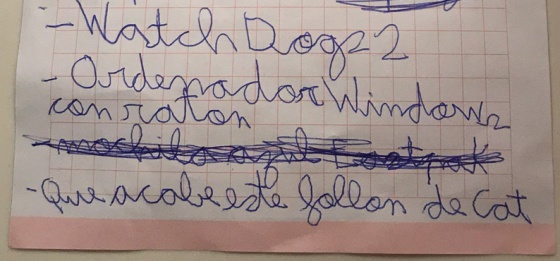 - Watch Dogs 2
- Ordenador Windows
con raton
mochila azul Eastpak
- Que acabe este follon de Cat